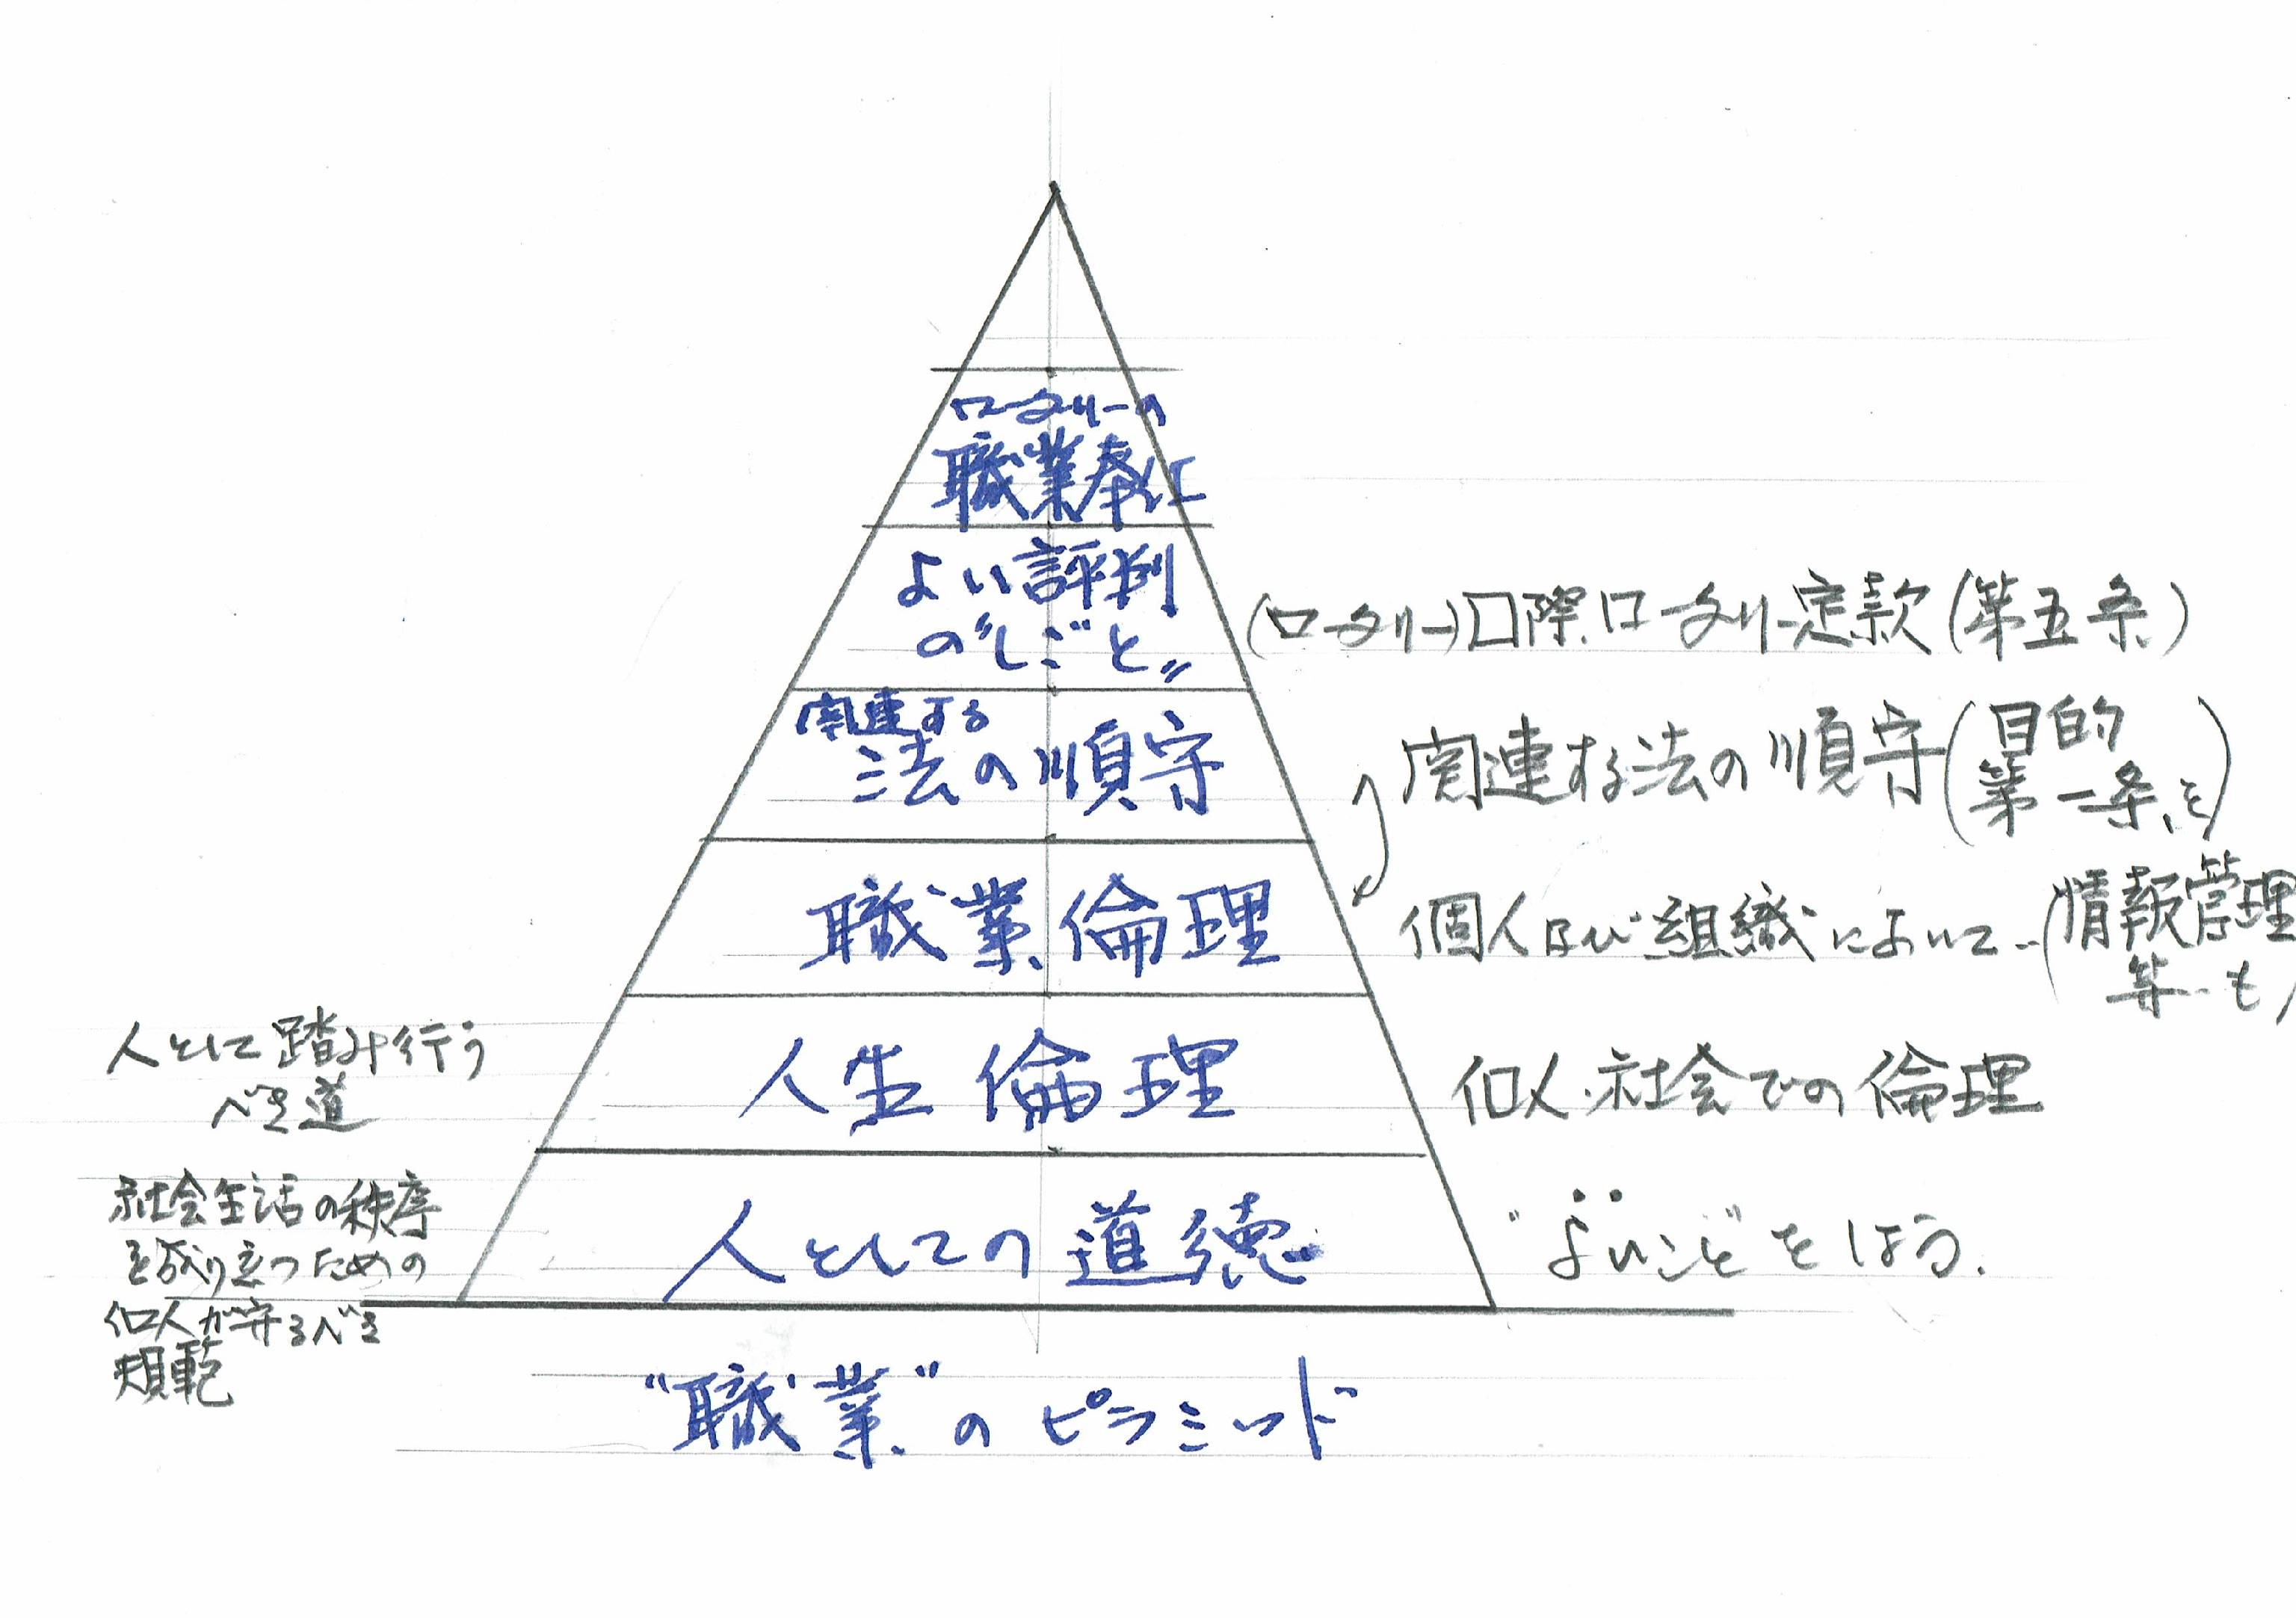 ロータリーの
職業奉仕
よい評判
の"しごと"
(ロータリー)国際ロータリー定款(第五条)
関連する
法の順守
関連する法の順守(目的
第一条、を)
職業倫理
個人及び組織において‥(情報管理
等‥も)
人として踏み行う
べき道
人生倫理
個人・社会での倫理
社会生活の秩序
を成り立つための
個人が守るべき
規範
人としての道徳
"よいこと"をしよう.
"職業"のピラミッド